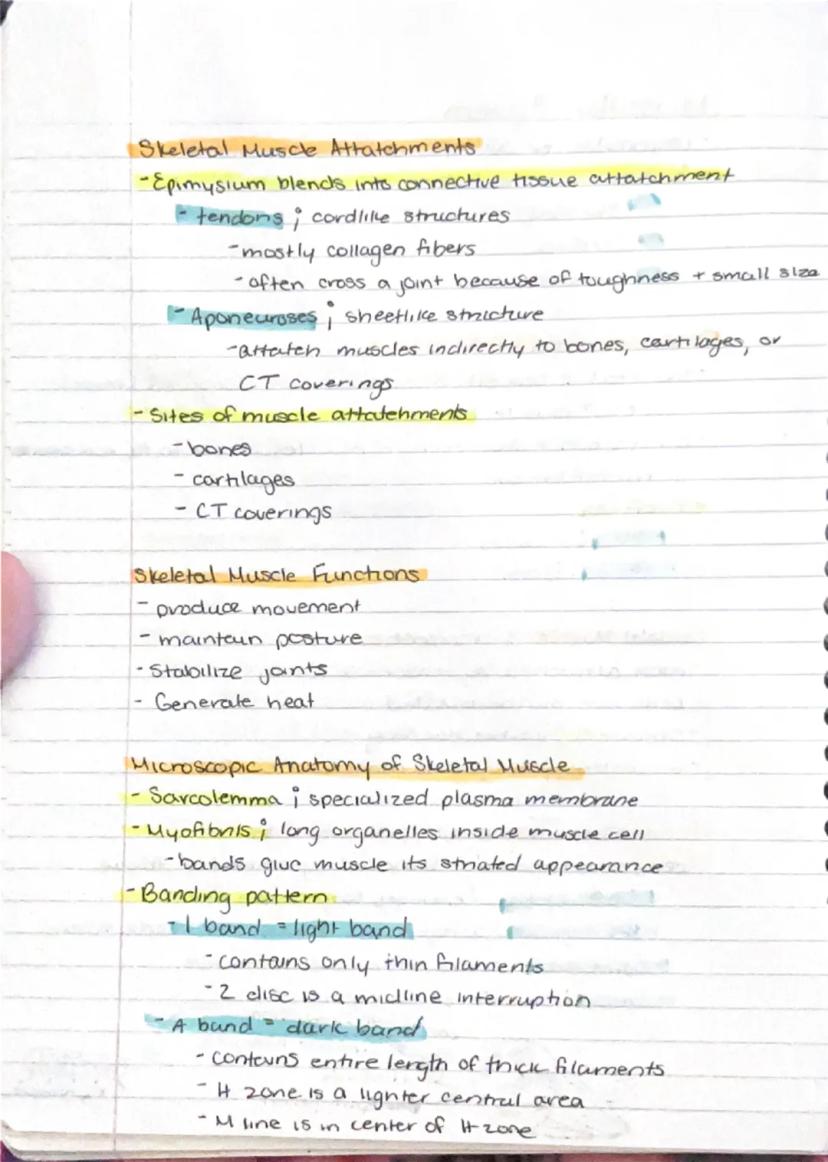 Skeletal Muscle Attatchments
- Epimysium blends into connective tissue attatchment
- tendons ; cordlike structures
- mostly collagen fibers
- often cross a joint because of toughness + small size
- Aponeuroses ; sheetlike structure
- attatch muscles indirectly to bones, cartilages, or
CT coverings
- Sites of muscle attatchments
- bones
- cartilages
- CT coverings
Skeletal Muscle Functions
- produce movement
- maintain posture
- Stabilize joints
- Generate heat
Microscopic Anatomy of Skeletal Muscle
- Sarcolemma ; specialized plasma membrane
- Myofibrils ; long organelles inside muscle cell
- bands give muscle its striated appearance
- Banding pattern
- I band = light band
- contains only thin filaments
- Z disc is a midline interruption
- A band = dark band
- contains entire length of thick filaments
- H zone is a lighter central area
- M line is in center of H zone